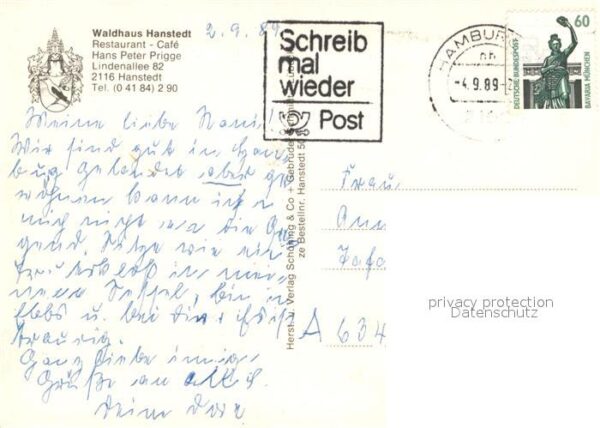 Waldhaus Hanstedt
Restaurant - Café
Hans Peter Prigge
Lindenallee 82
2116 Hanstedt
Tel. (0 41 84) 2 90
2.9.89
Schreib
mal
wieder
Post
HAMBUR
-4.9.89-
60
DEUTSCHE BUNDESPOST
BAVARIA MÜNCHEN
Meine liebe
Wir sind gut in Ham
burg gelandet aber ge
wöhnen kann ich
mich nicht an die Ge
gend. Sitze wie ein
in mei
nem Sessel, bin
u. bin
traurig.
Ganz liebe innige
Grüße an alle
Deine Dore
Herst. u. Verlag Schöning & Co + Gebrüder
ze Bestellnr. Hanstedt 50
Frau
A 634
privacy protection
Datenschutz